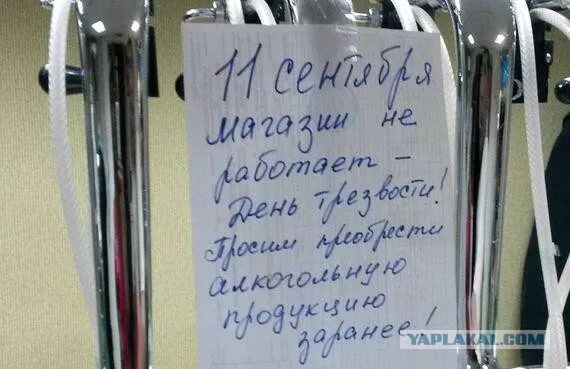 11 сентября
магазин не
работает -
День трезвости!
Просим преобрести
алкогольную
продукцию
заранее!
YAPLAKAL.COM